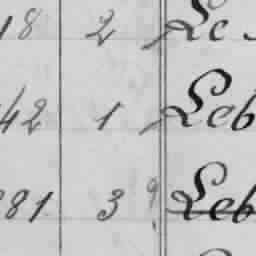 18 2 Le
42 1 Leb
81 3 Leb